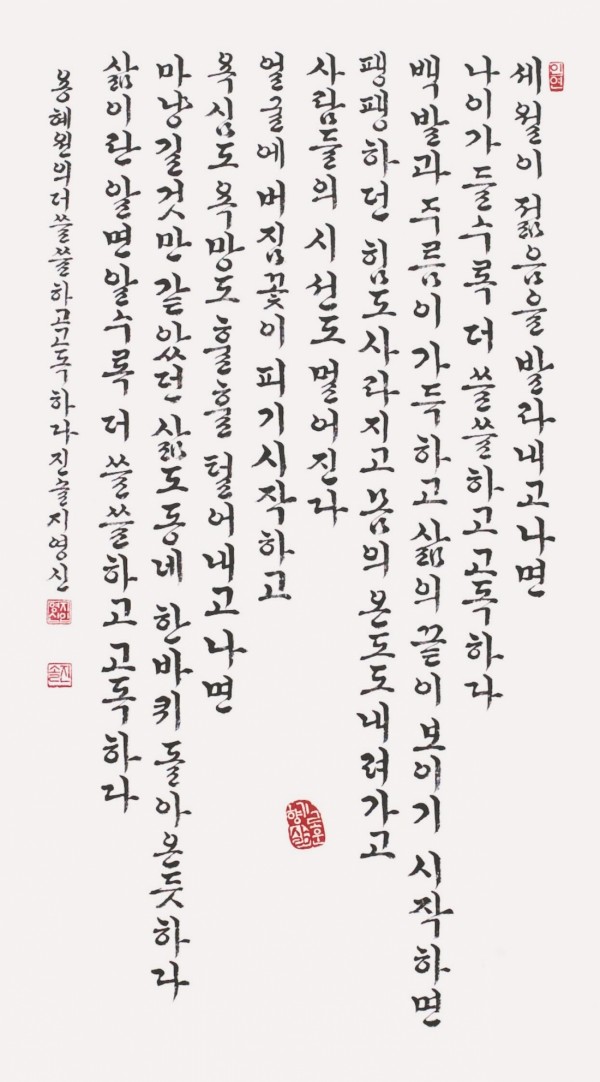 인연
세월이 젊음을 발라내고나면
나이가 들수록 더 쓸쓸하고 고독하다
백발과 주름이 가득하고 삶의 끝이 보이기 시작하면
팽팽하던 힘도 사라지고 몸의 온도도 내려가고
사람들의 시선도 멀어진다
얼굴에 버짐꽃이 피기시작하고
욕심도 욕망도 훌훌 털어내고나면
마냥길것만 같았던 삶도 동네 한바퀴 돌아온듯하다
삶이란 알면알수록 더 쓸쓸하고 고독하다
용혜원의 더 쓸쓸하고고독하다 진솔 지영신
진솔